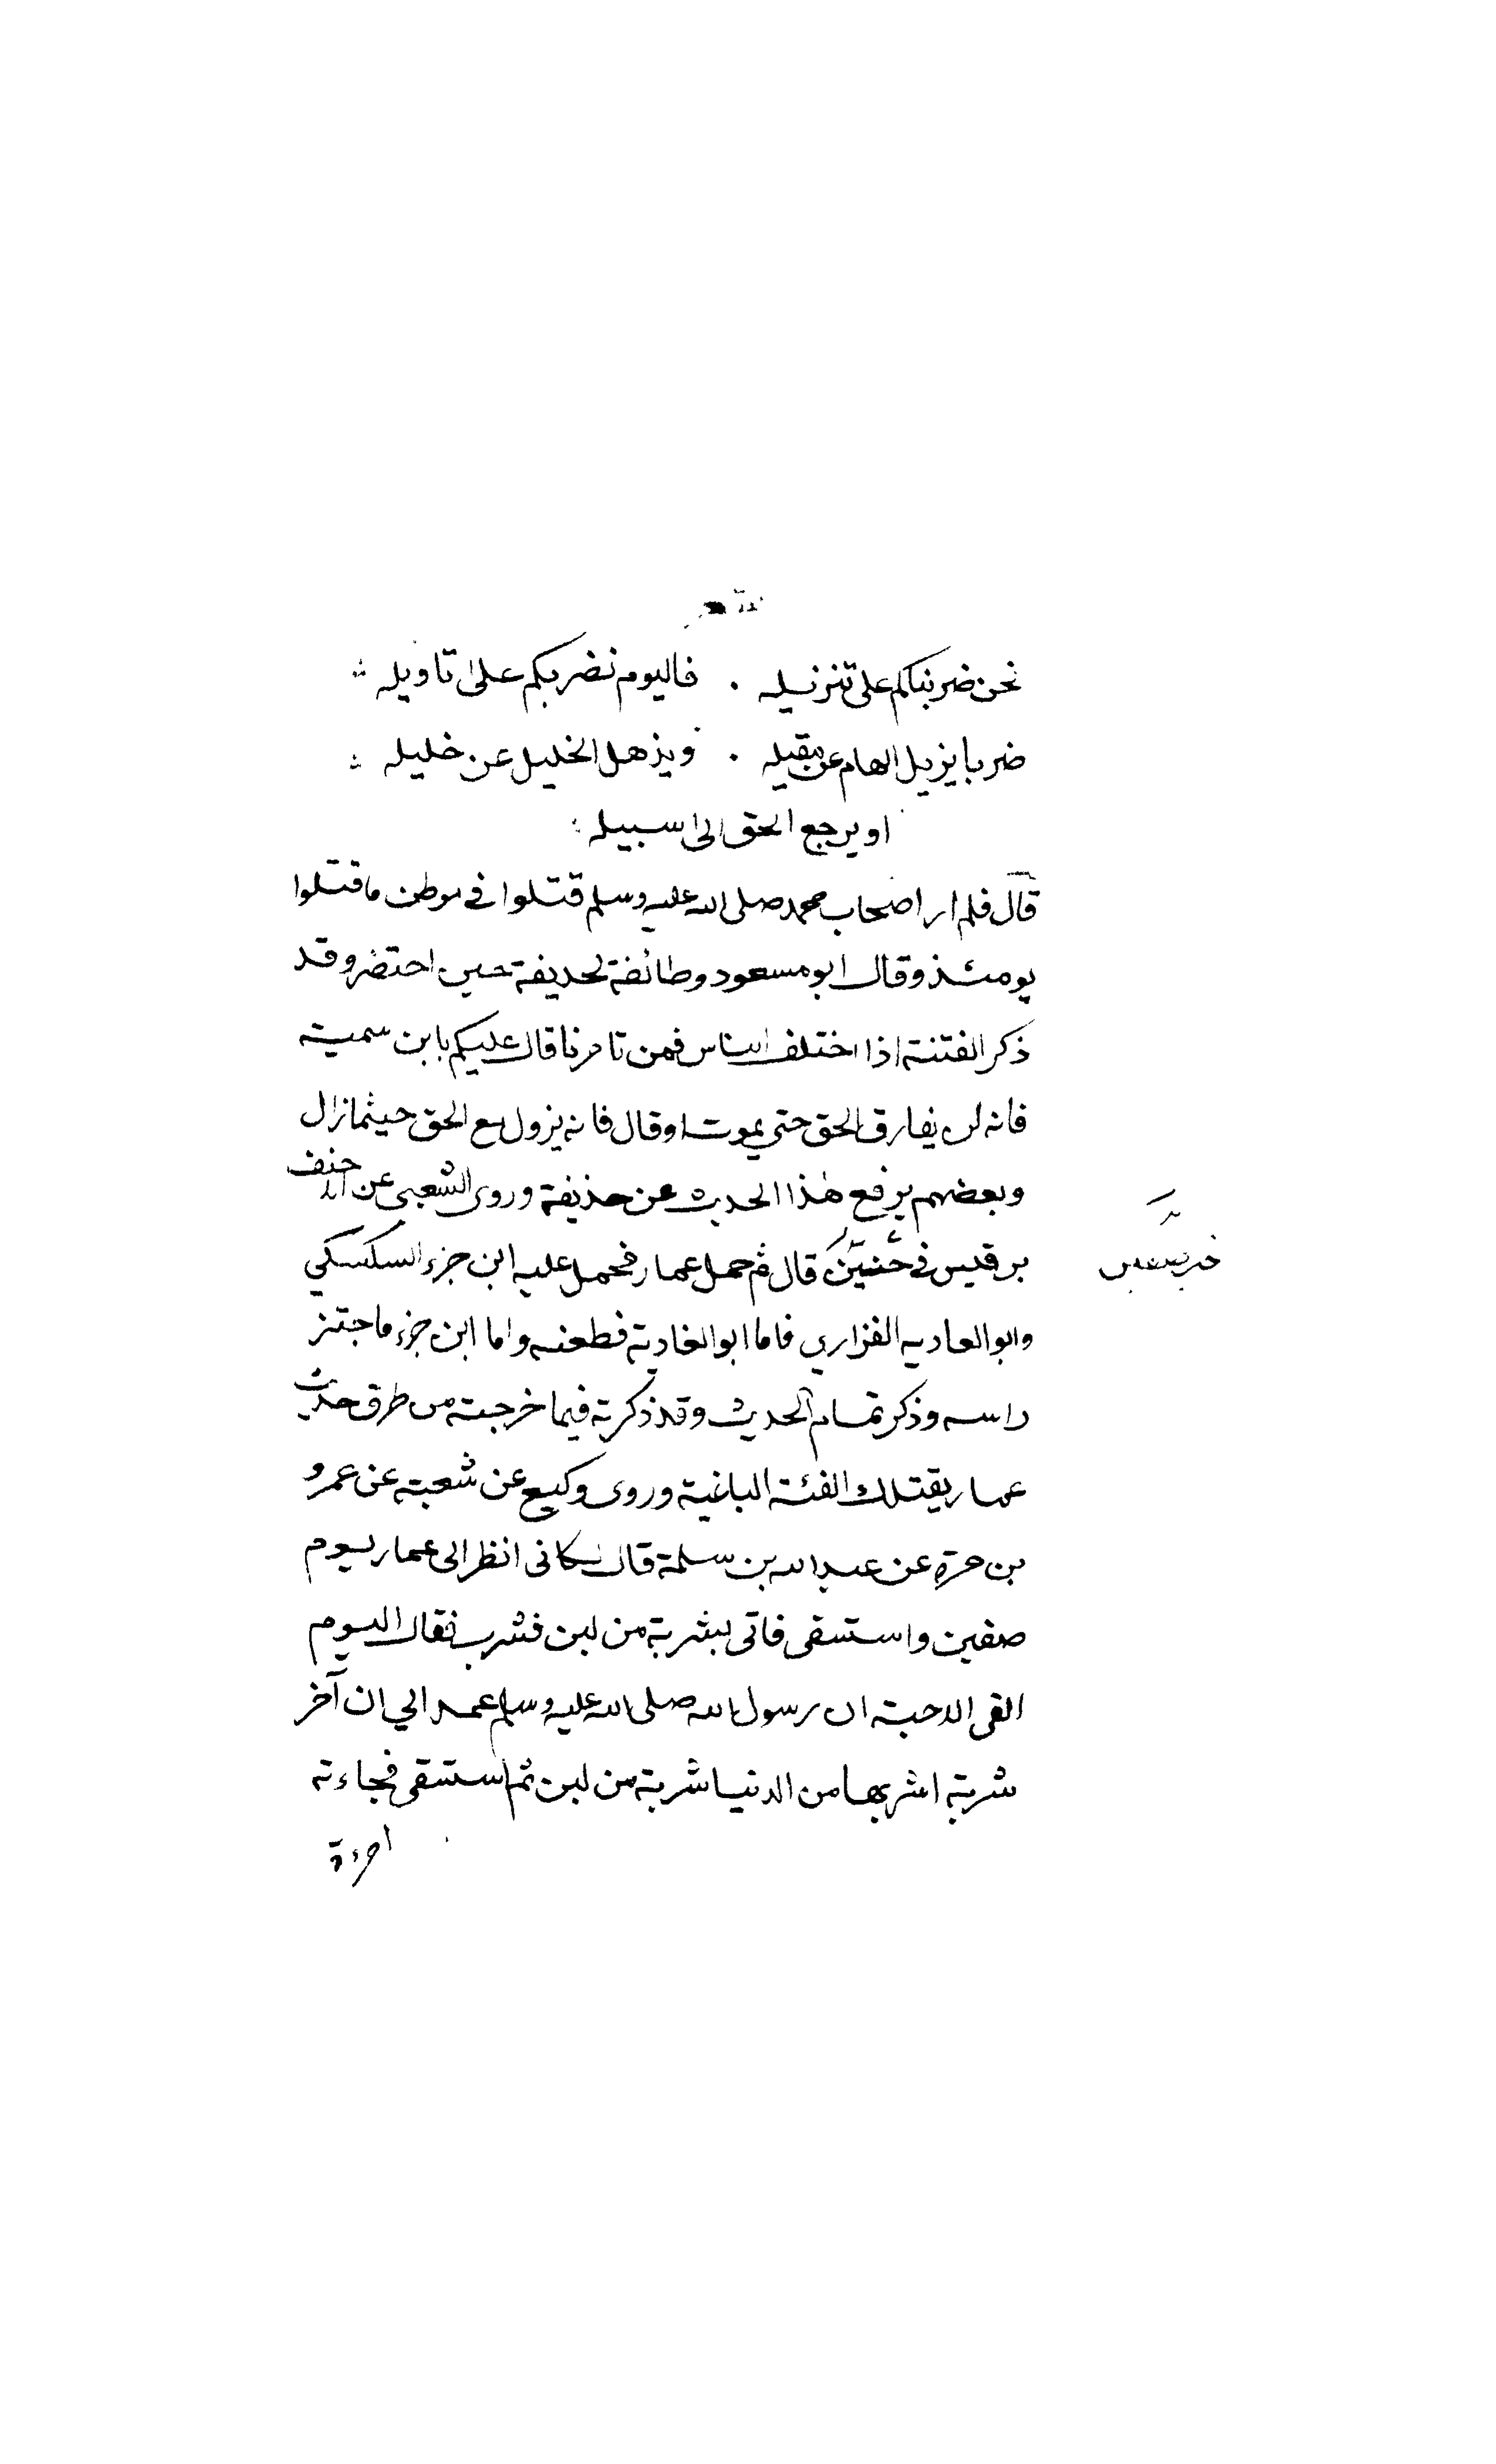 نحن ضربناكم على تنزيله . فاليوم نضربكم على تاويله
ضربا يزيل الهام عن مقيله . ويذهل الخليل عن خليله
او يرجع الحق الى سبيله
قال فلم ار اصحاب محمد صلى الله عليه وسلم قتلوا في موطن ما قتلوا
يومئذ وقال ابو مسعود وطائفة لحذيفة حين احتضر وقد
ذكر الفتنة اذا اختلف الناس فمن تامرنا قال عليكم بابن سمية
فانه لن يفارق الحق حتى يموت او قال فانه يزول مع الحق حيثما زال
وبعضهم يرفع هذا الحديث عن حذيفة وروى الشعبي عن الاحنف
بن قيس في قال ثم حمل عمار فحمل عليه ابن جزء السكسكي
وابو الغاديه الفزاري فاما ابو الغادية فطعنه واما ابن جزء فاجتز
راسه وذكر تمام الحديث وقد ذكرته فيما خرجته من طرق حديث
عمار يقتلك الفئة الباغية وروى وكيع عن شعبة عن عمرو
بن مرة عن عبد الله بن سلمة قال لكانى انظر الى عمار يوم
صفين واستسقى فاتى بشربة من لبن فشرب فقال اليوم
القى الاحبة ان رسول الله صلى الله عليه وسلم عهد الي ان آخر
شربة اشربها من الدنيا شربة من لبن ثم استسقى فجاءته
امرءة